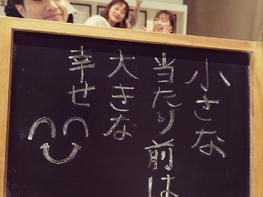 小さな
当たり前は
大きな
幸せ